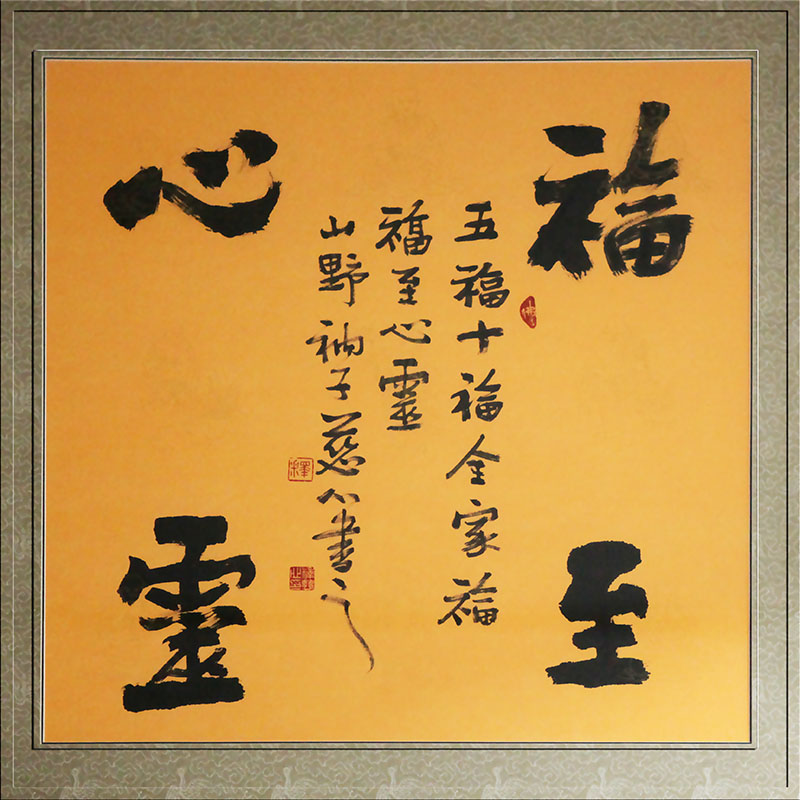 福至
心靈
五福十福全家福
福至心靈
山野衲子慈心書之